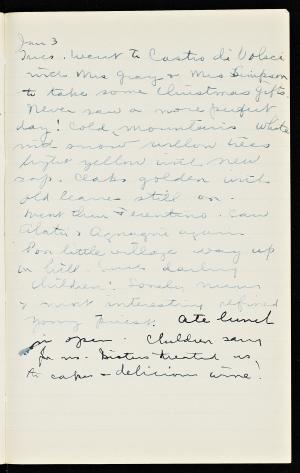 Jan 3
Tues. Went to Castro di Volsci
with Mrs Gray & Mrs Simpson
to take some Christmas gifts.
Never saw a more perfect
day! Cold mountains white
with snow willow trees
light yellow with new
sap. Oaks golden with
old leaves still on.
Went thru Ferentino. Saw
Alatri & Agnagni again
Poor little village way up
on hill. Such darling
children! Lovely nuns
& most interesting refined
young Priest. Ate lunch
in open. Children sang
for us. Sisters treated us
to cakes & delicious wine!